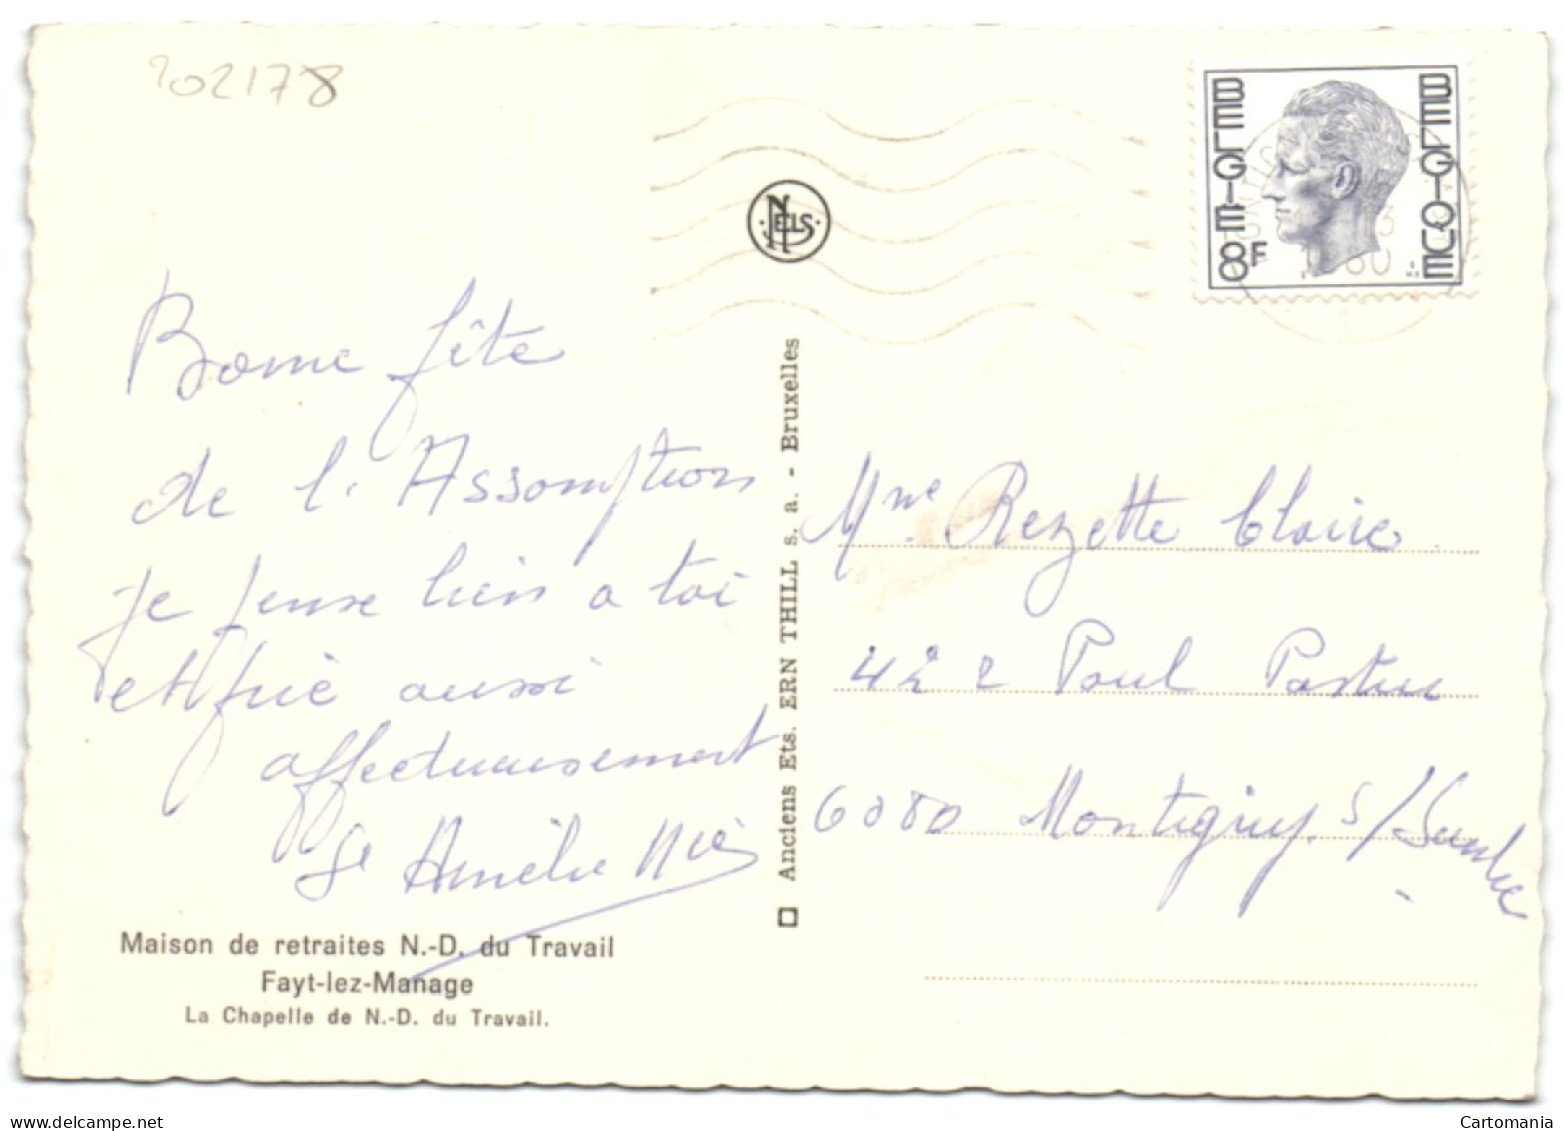 202178
BELGIE
BELGIQUE
8F
NELS
Bonne fête
de l'Assomption
je pense bien a toi
et prie aussi
affectueusement
Sr Amélie
Maison de retraites N.-D. du Travail
Fayt-lez-Manage
La Chapelle de N.-D. du Travail.
Anciens Ets. ERN THILL s. a. - Bruxelles
Mme Rezette Claire
42 r Paul Pastur
6080 Montigny s/Sambre
Cartomania